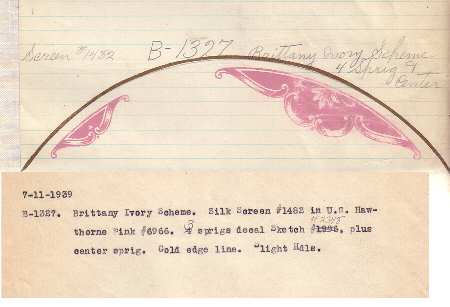 Screen #1482 B-1327 Brittany Ivory Scheme
4 Sprig &
Center
7-11-1939
B-1327. Brittany Ivory Scheme. Silk Screen #1482 in U.S. Haw-
thorne Pink #6966. 3 sprigs decal Sketch plus
center sprig. Gold edge line. Slight Hdls.